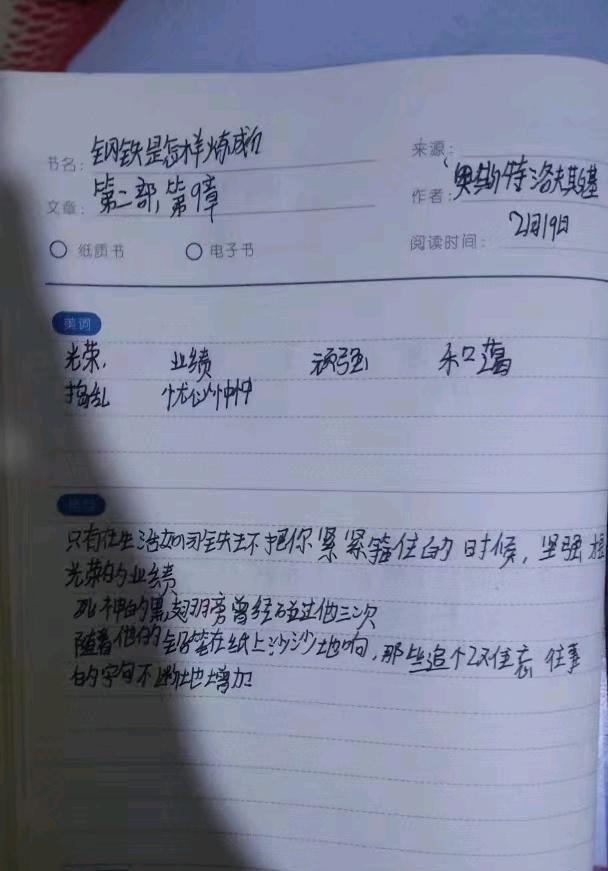 书名: 钢铁是怎样炼成的
来源:
文章: 第二部,第9章
作者: 奥斯特洛夫斯基
纸质书 电子书
阅读时间: 2月19日
美词
光荣, 业绩 顽强
捣乱 忧心忡忡
佳句
只有在生活如同铁环把你紧紧箍住的时候,坚强
光荣的业绩
死神的黑翅膀曾经碰过他三次
随着他的钢笔在纸上沙沙地响,那些追忆往 往事
的字句不断地增加